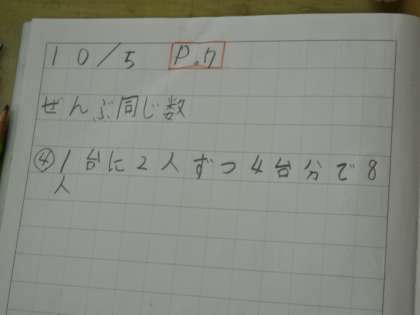 10/5 P.7
ぜんぶ同じ数
④1台に2人ずつ4台分で8
人